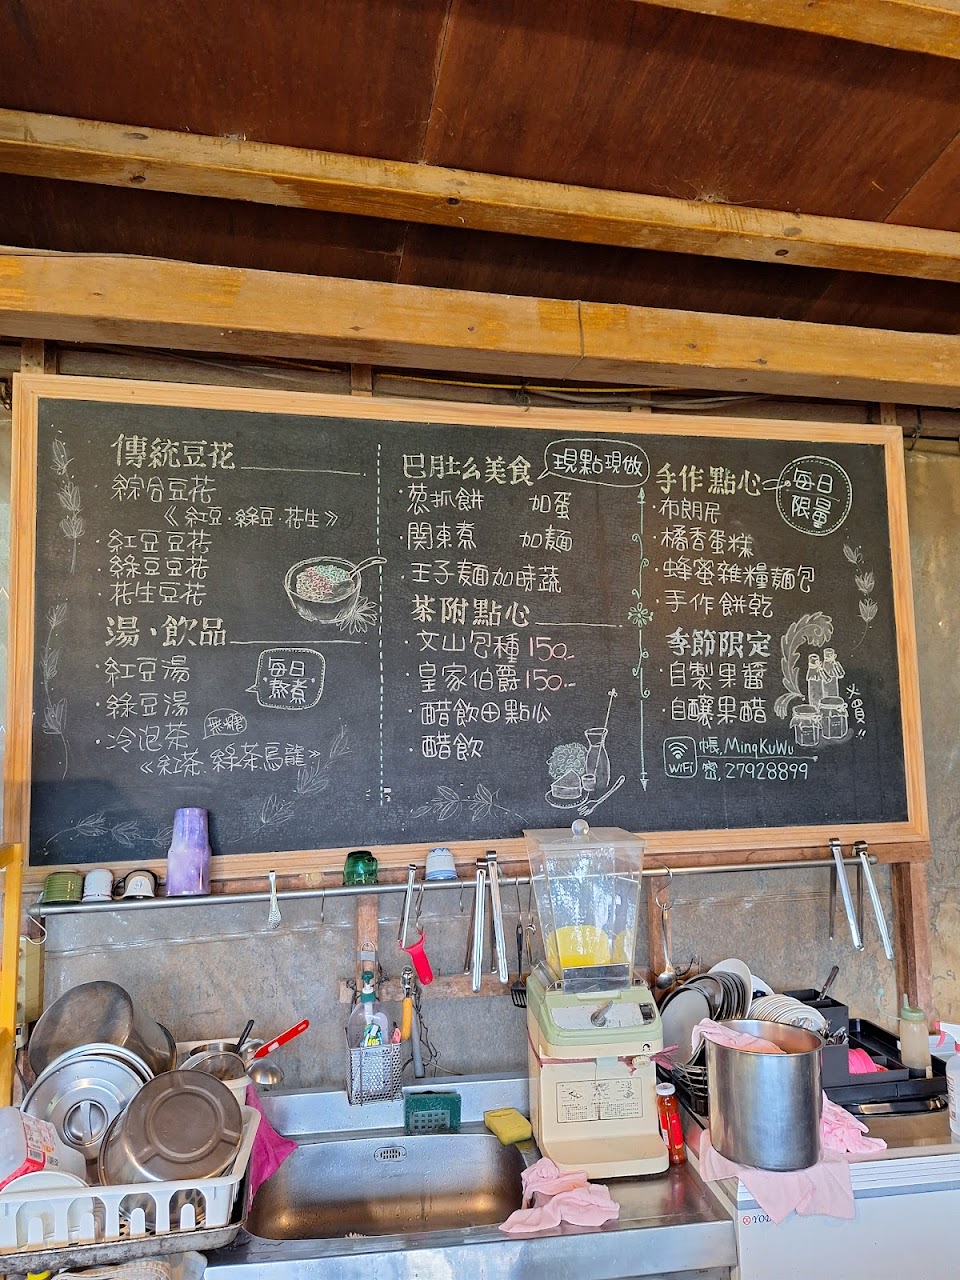 傳統豆花
綜合豆花
《紅豆·綠豆·花生》
·紅豆豆花
·綠豆豆花
·花生豆花
湯·飲品
·紅豆湯
每日
熬煮
·綠豆湯
·冷泡茶 無糖
《紅茶.綠茶烏龍》
巴肚么美食 現點現做
·蔥抓餅 加蛋
·関東煮 加麵
·王子麵加時蔬
茶附點心
·文山包種150.-
·皇家伯爵150.-
·醋飲⊕點心
·醋飲
手作點心 每日
限量
·布朗尼
·橘香蛋糕
·蜂蜜雜糧麵包
·手作餅乾
季節限定
·自製果醬
·自釀果醋
WiFi
帳.MingKuWu
密.27928899